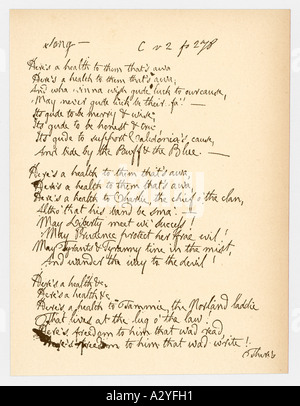 Song —
C v 2 f 278
Here's a health to them that's awa
Here's a health to them that's awa,
And wha winna wish gude luck to our cause,
May never gude luck be their fa'! —
Its gude to be merry & wise,
Its gude to be honest & true
Its gude to support Caledonia's cause,
And bide by the Buff & the Blue. —
Here's a health to them that's awa,
Here's a health to them that's awa,
Here's a health to Charlie, the chief o' the clan,
Altho' that his band be sma'.
May Liberty meet wi' success!
May Prudence protect her frae evil!
May Tyrants & Tyranny tine in the mist,
And wander the way to the devil!
Here's a health &c
Here's a health &c
Here's a health to Tammie, the Norland laddie
That lives at the lug o' the law!
Here's freedom to him that wad read,
Here's freedom to him that wad write!
alamy stock photo
A2YFH1